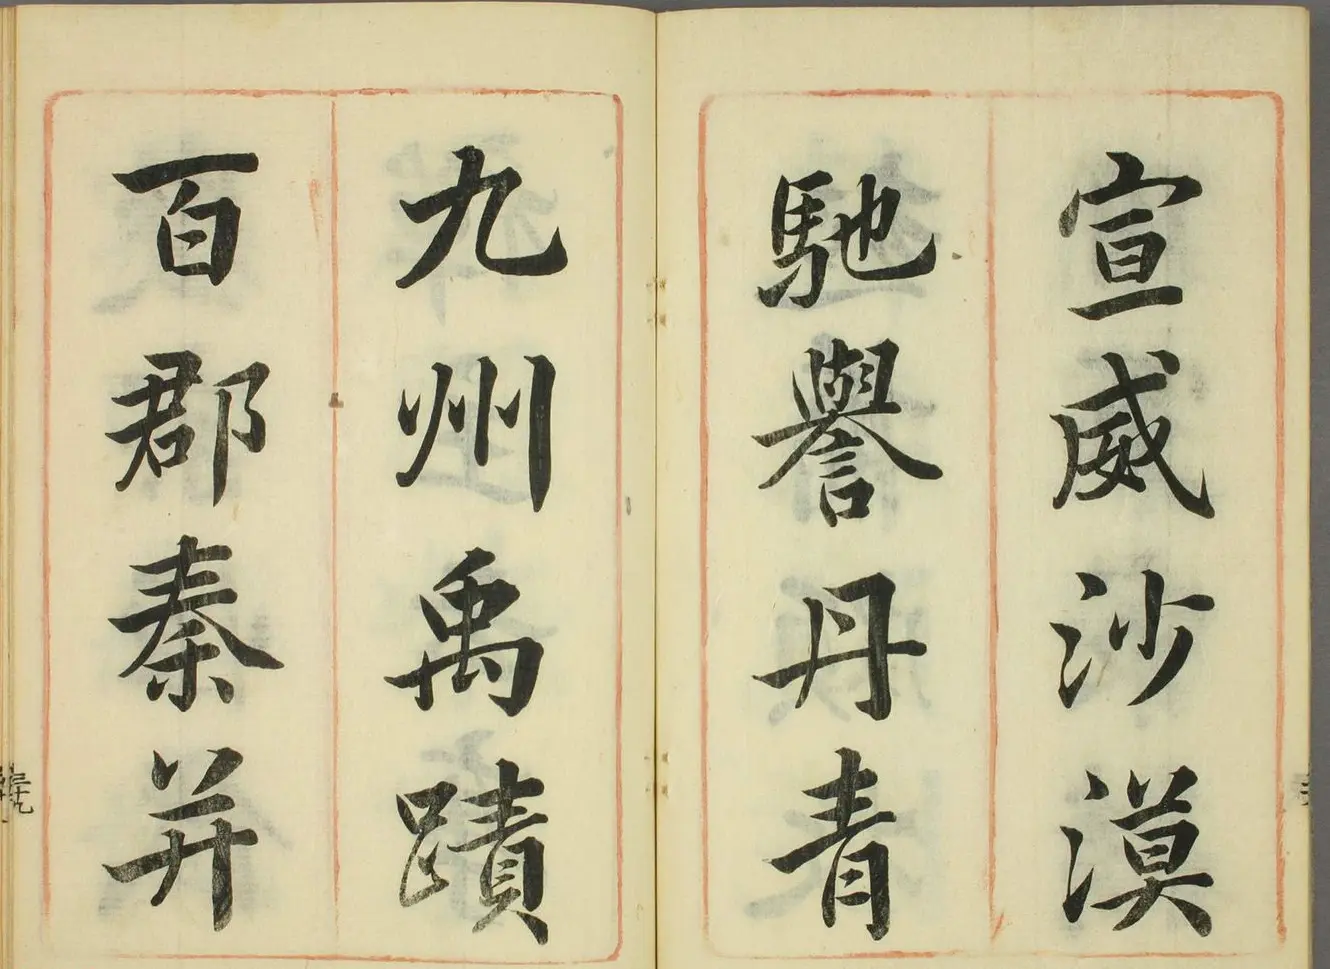 宣威沙漠
馳譽丹青
九州禹蹟
百郡秦并